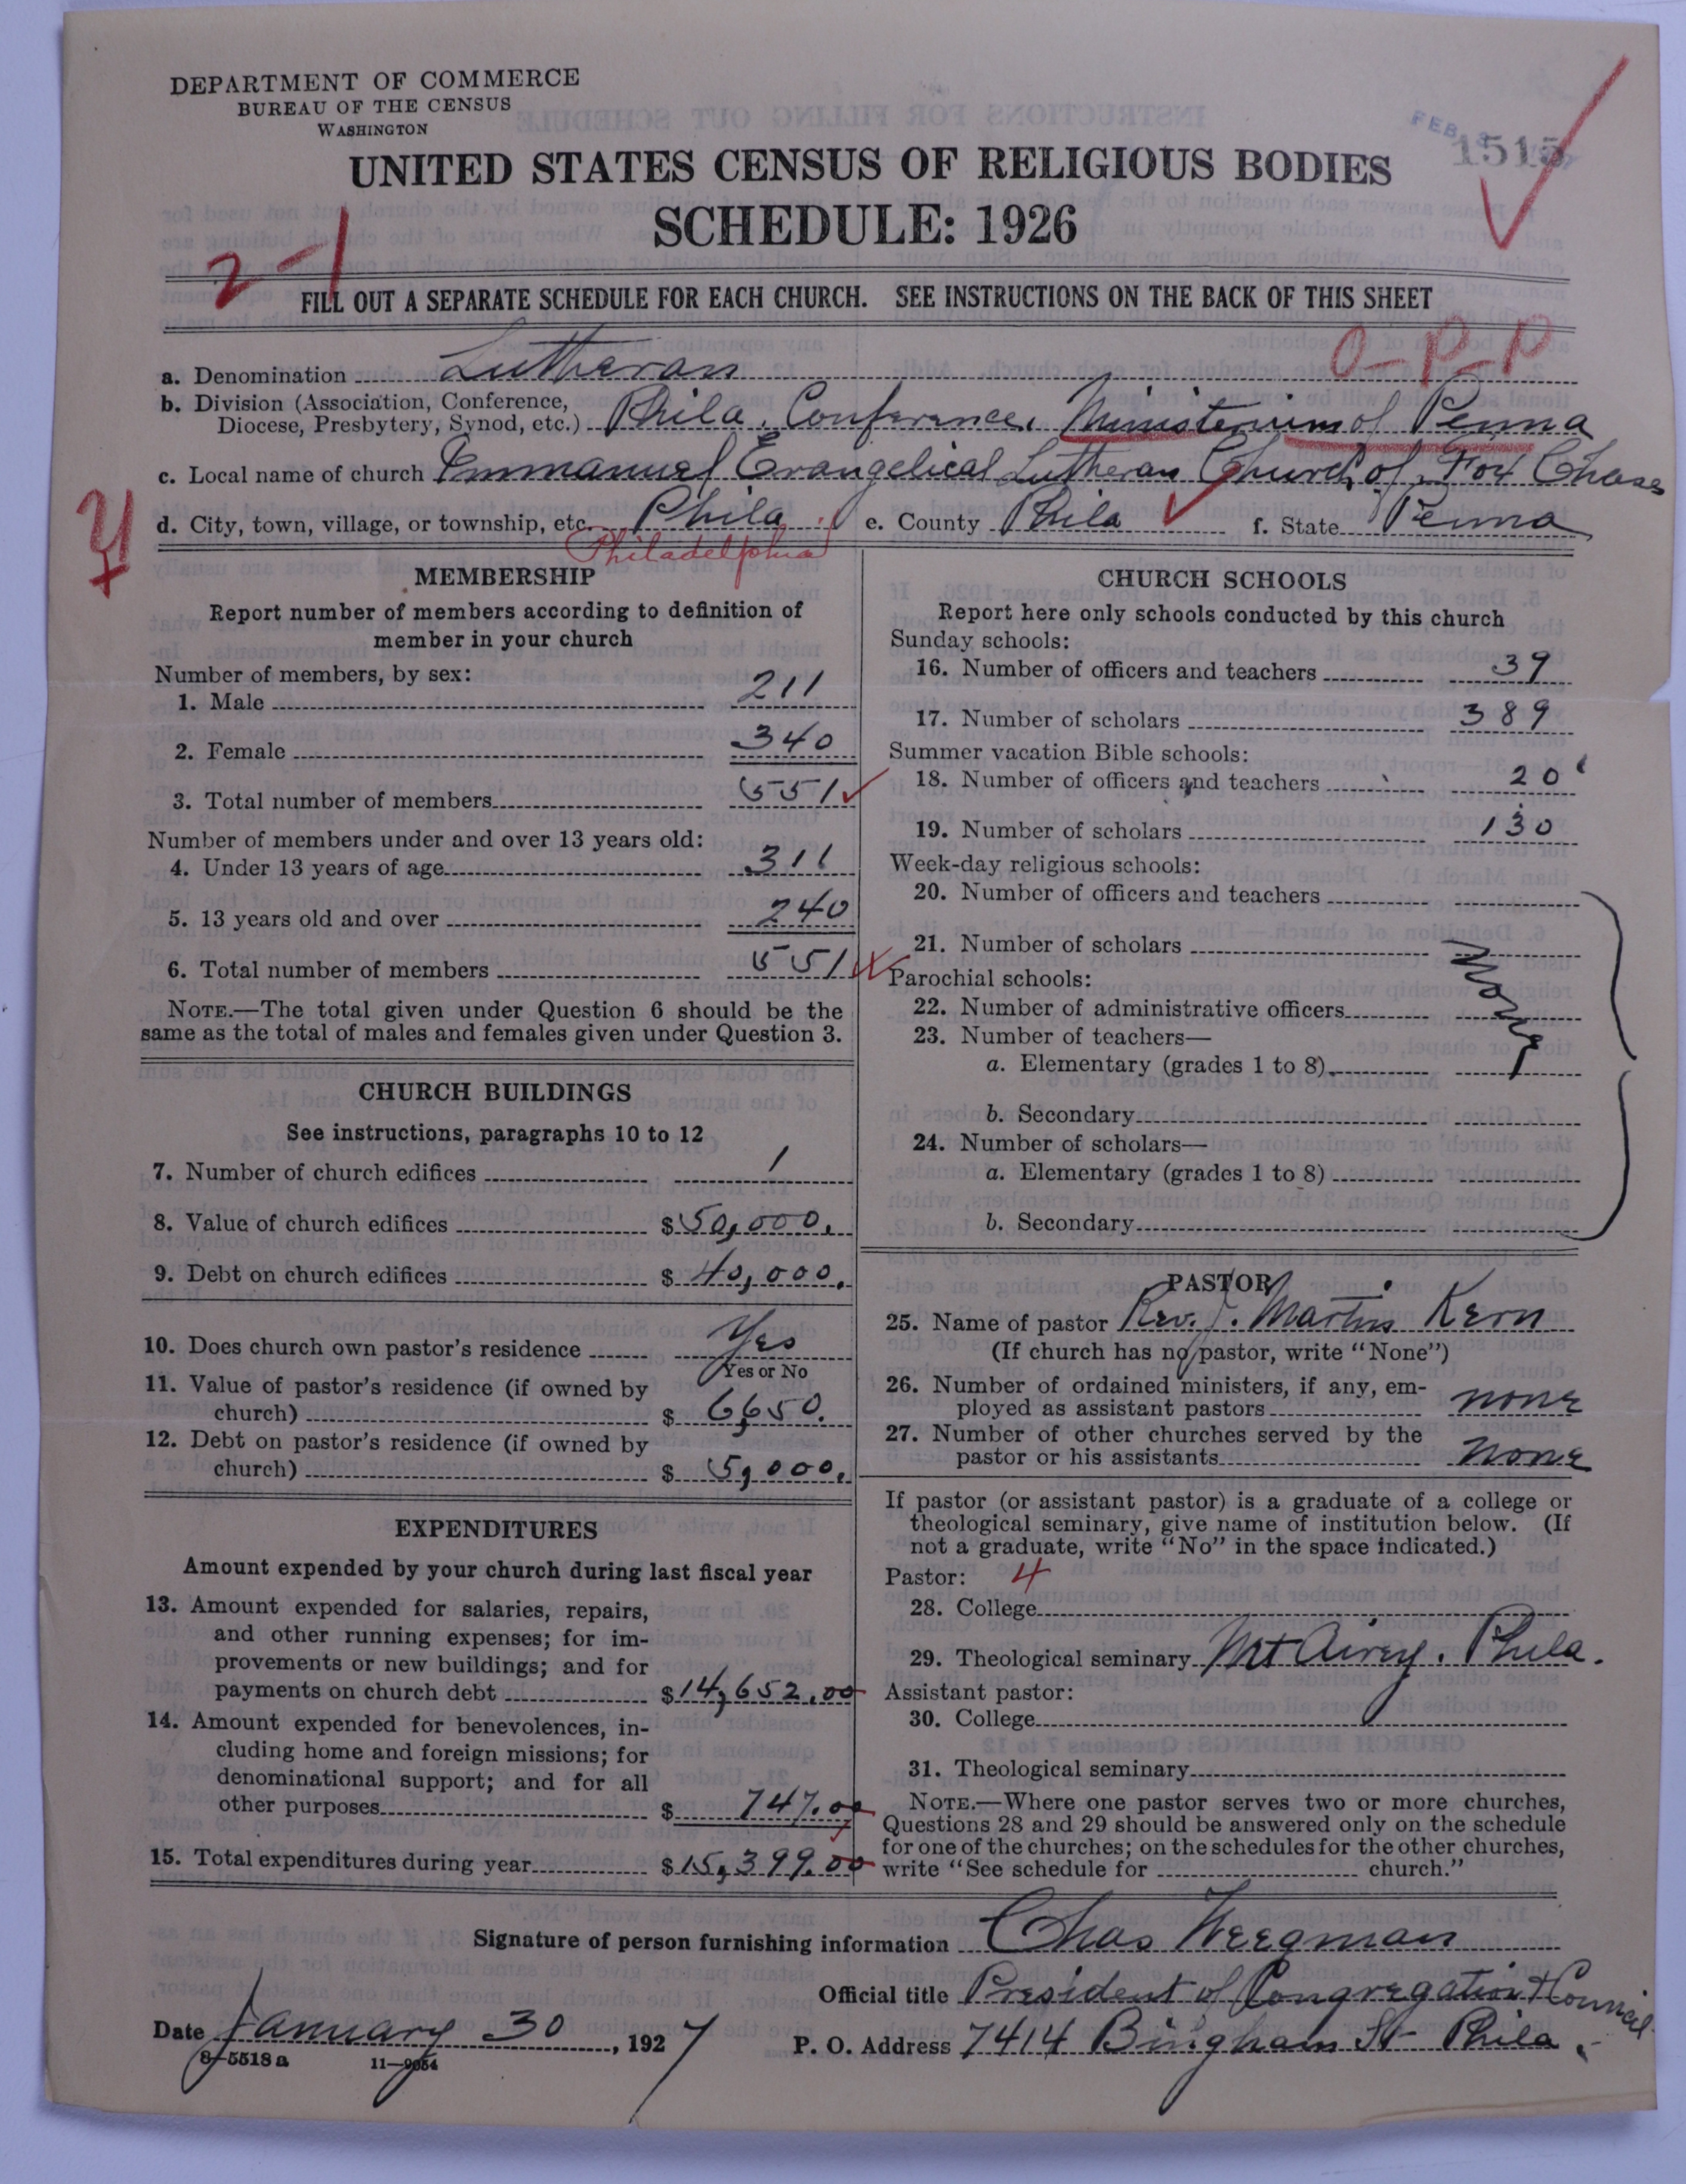 DEPARTMENT OF COMMERCE
BUREAU OF THE CENSUS
WASHINGTON
FEB
1515
UNITED STATES CENSUS OF RELIGIOUS BODIES
SCHEDULE: 1926
2-1
FILL OUT A SEPARATE SCHEDULE FOR EACH CHURCH. SEE INSTRUCTIONS ON THE BACK OF THIS SHEET
O-P-P
a. Denomination Lutheran
b. Division (Association, Conference,
Diocese, Presbytery, Synod, etc.) Phila. Conference, Ministerium of Penna
c. Local name of church Emmanuel Evangelical Lutheran Church, of Fox Chase
d. City, town, village, or township, etc. Phila. e. County Phila f. State Penna
Philadelphia
MEMBERSHIP
Report number of members according to definition of
member in your church
Number of members, by sex:
1. Male 211
2. Female 340
3. Total number of members 551
Number of members under and over 13 years old:
4. Under 13 years of age 311
5. 13 years old and over 240
6. Total number of members 551
NOTE.—The total given under Question 6 should be the
same as the total of males and females given under Question 3.
CHURCH BUILDINGS
See instructions, paragraphs 10 to 12
7. Number of church edifices 1
8. Value of church edifices $50,000.
9. Debt on church edifices $40,000.
10. Does church own pastor's residence Yes
Yes or No
11. Value of pastor's residence (if owned by
church) $6,650.
12. Debt on pastor's residence (if owned by
church) $5,000.
EXPENDITURES
Amount expended by your church during last fiscal year
13. Amount expended for salaries, repairs,
and other running expenses; for im-
provements or new buildings; and for
payments on church debt $14,652.00
14. Amount expended for benevolences, in-
cluding home and foreign missions; for
denominational support; and for all
other purposes $747.00
15. Total expenditures during year $15,399.00
CHURCH SCHOOLS
Report here only schools conducted by this church
Sunday schools:
16. Number of officers and teachers 39
17. Number of scholars 389
Summer vacation Bible schools:
18. Number of officers and teachers 20
19. Number of scholars 130
Week-day religious schools:
20. Number of officers and teachers
21. Number of scholars
None
Parochial schools:
22. Number of administrative officers
23. Number of teachers—
a. Elementary (grades 1 to 8)
b. Secondary
24. Number of scholars—
a. Elementary (grades 1 to 8)
b. Secondary
PASTOR
25. Name of pastor Rev. J. Martin Kern
(If church has no pastor, write "None")
26. Number of ordained ministers, if any, em-
ployed as assistant pastors none
27. Number of other churches served by the
pastor or his assistants none
If pastor (or assistant pastor) is a graduate of a college or
theological seminary, give name of institution below. (If
not a graduate, write "No" in the space indicated.)
Pastor: 4
28. College
29. Theological seminary Mt Airy. Phila.
Assistant pastor:
30. College
31. Theological seminary
NOTE.—Where one pastor serves two or more churches,
Questions 28 and 29 should be answered only on the schedule
for one of the churches; on the schedules for the other churches,
write "See schedule for church."
Signature of person furnishing information Chas Weegman
Official title President of Congregation & Council
Date January 30, 1927 P. O. Address 7414 Bingham St Phila.
8-5518 a 11-9054